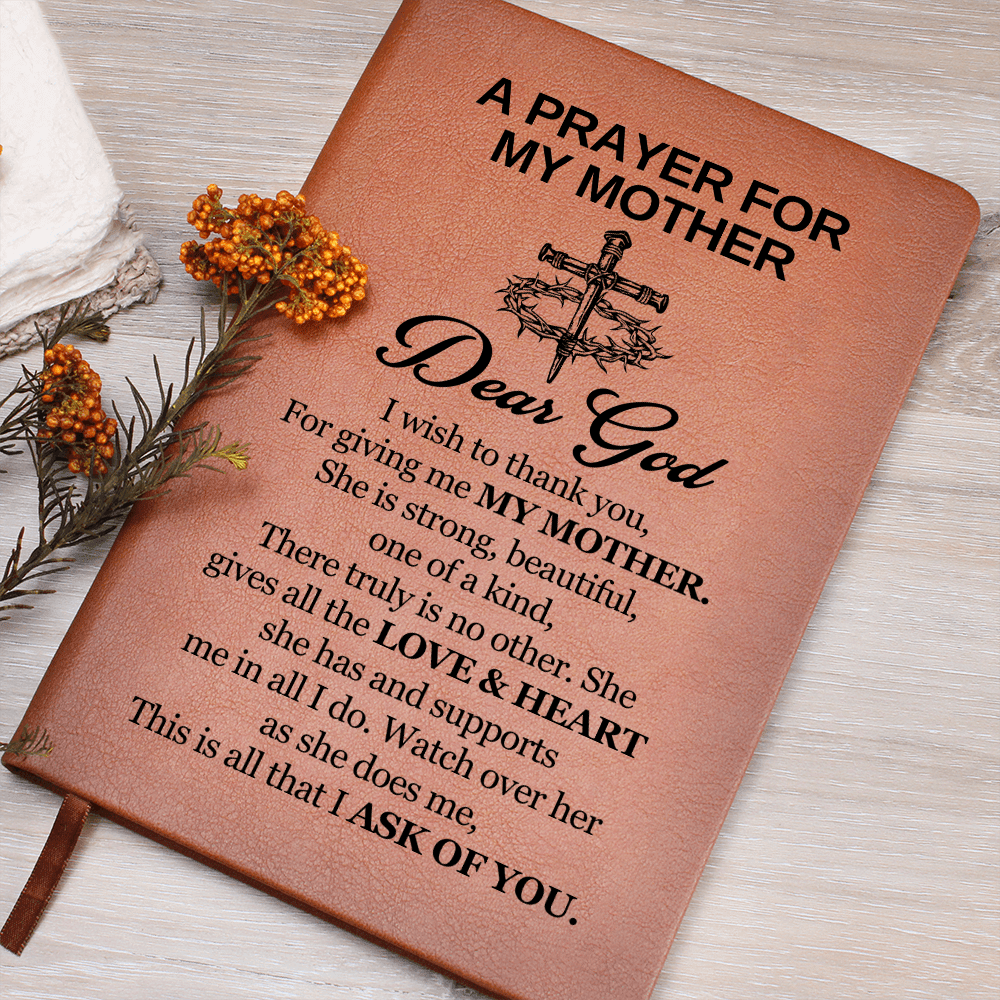 A PRAYER FOR
MY MOTHER
Dear God
I wish to thank you,
For giving me MY MOTHER.
She is strong, beautiful,
one of a kind,
There truly is no other. She
gives all the LOVE & HEART
she has and supports
me in all I do. Watch over her
as she does me,
This is all that I ASK OF YOU.